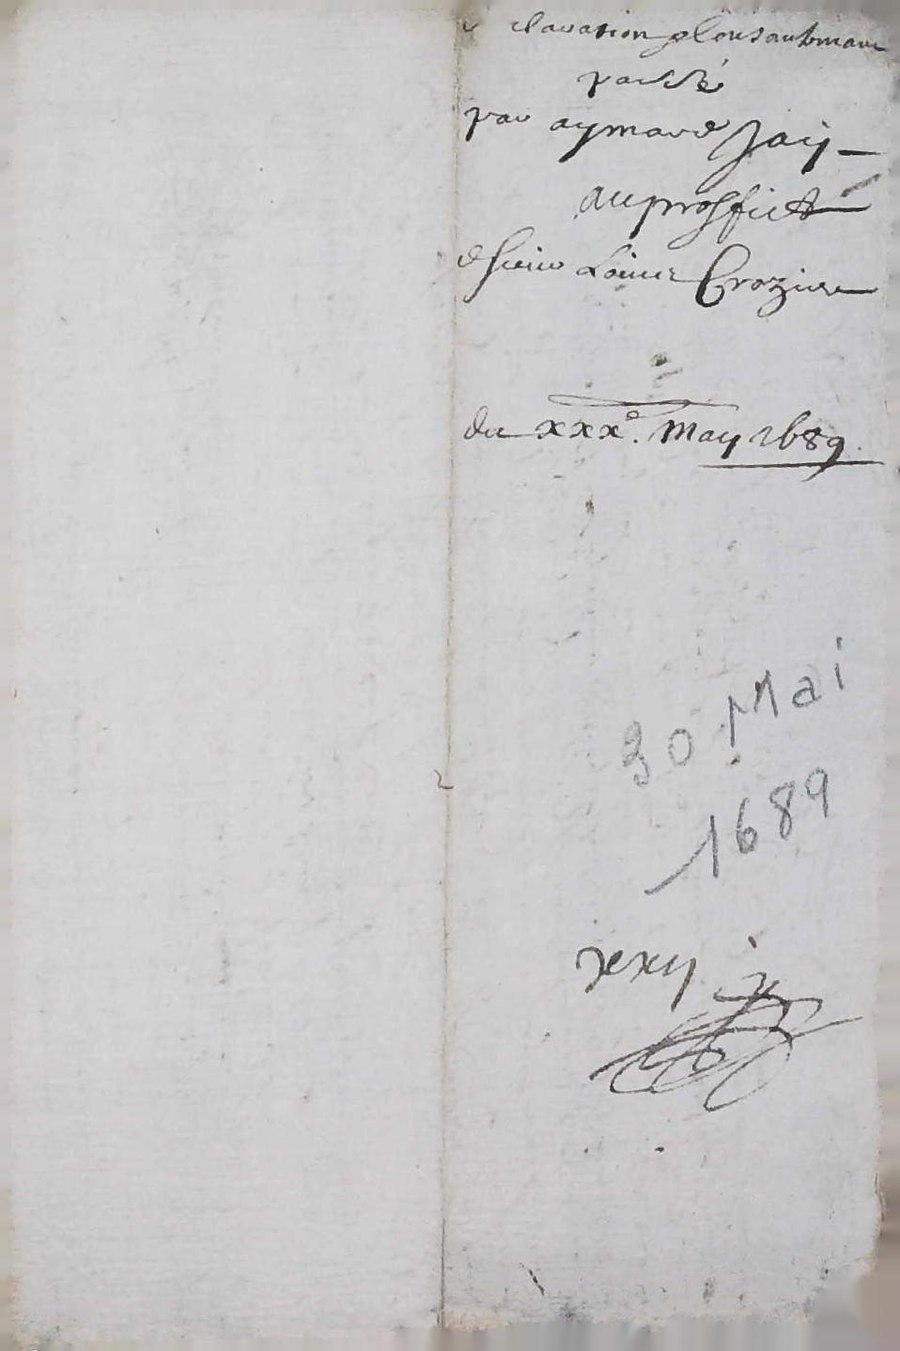 claration
passé
par aymard Jay
au proffict
de sieur Louis Crozier
du xxx.e May 1689.
30 Mai
1689